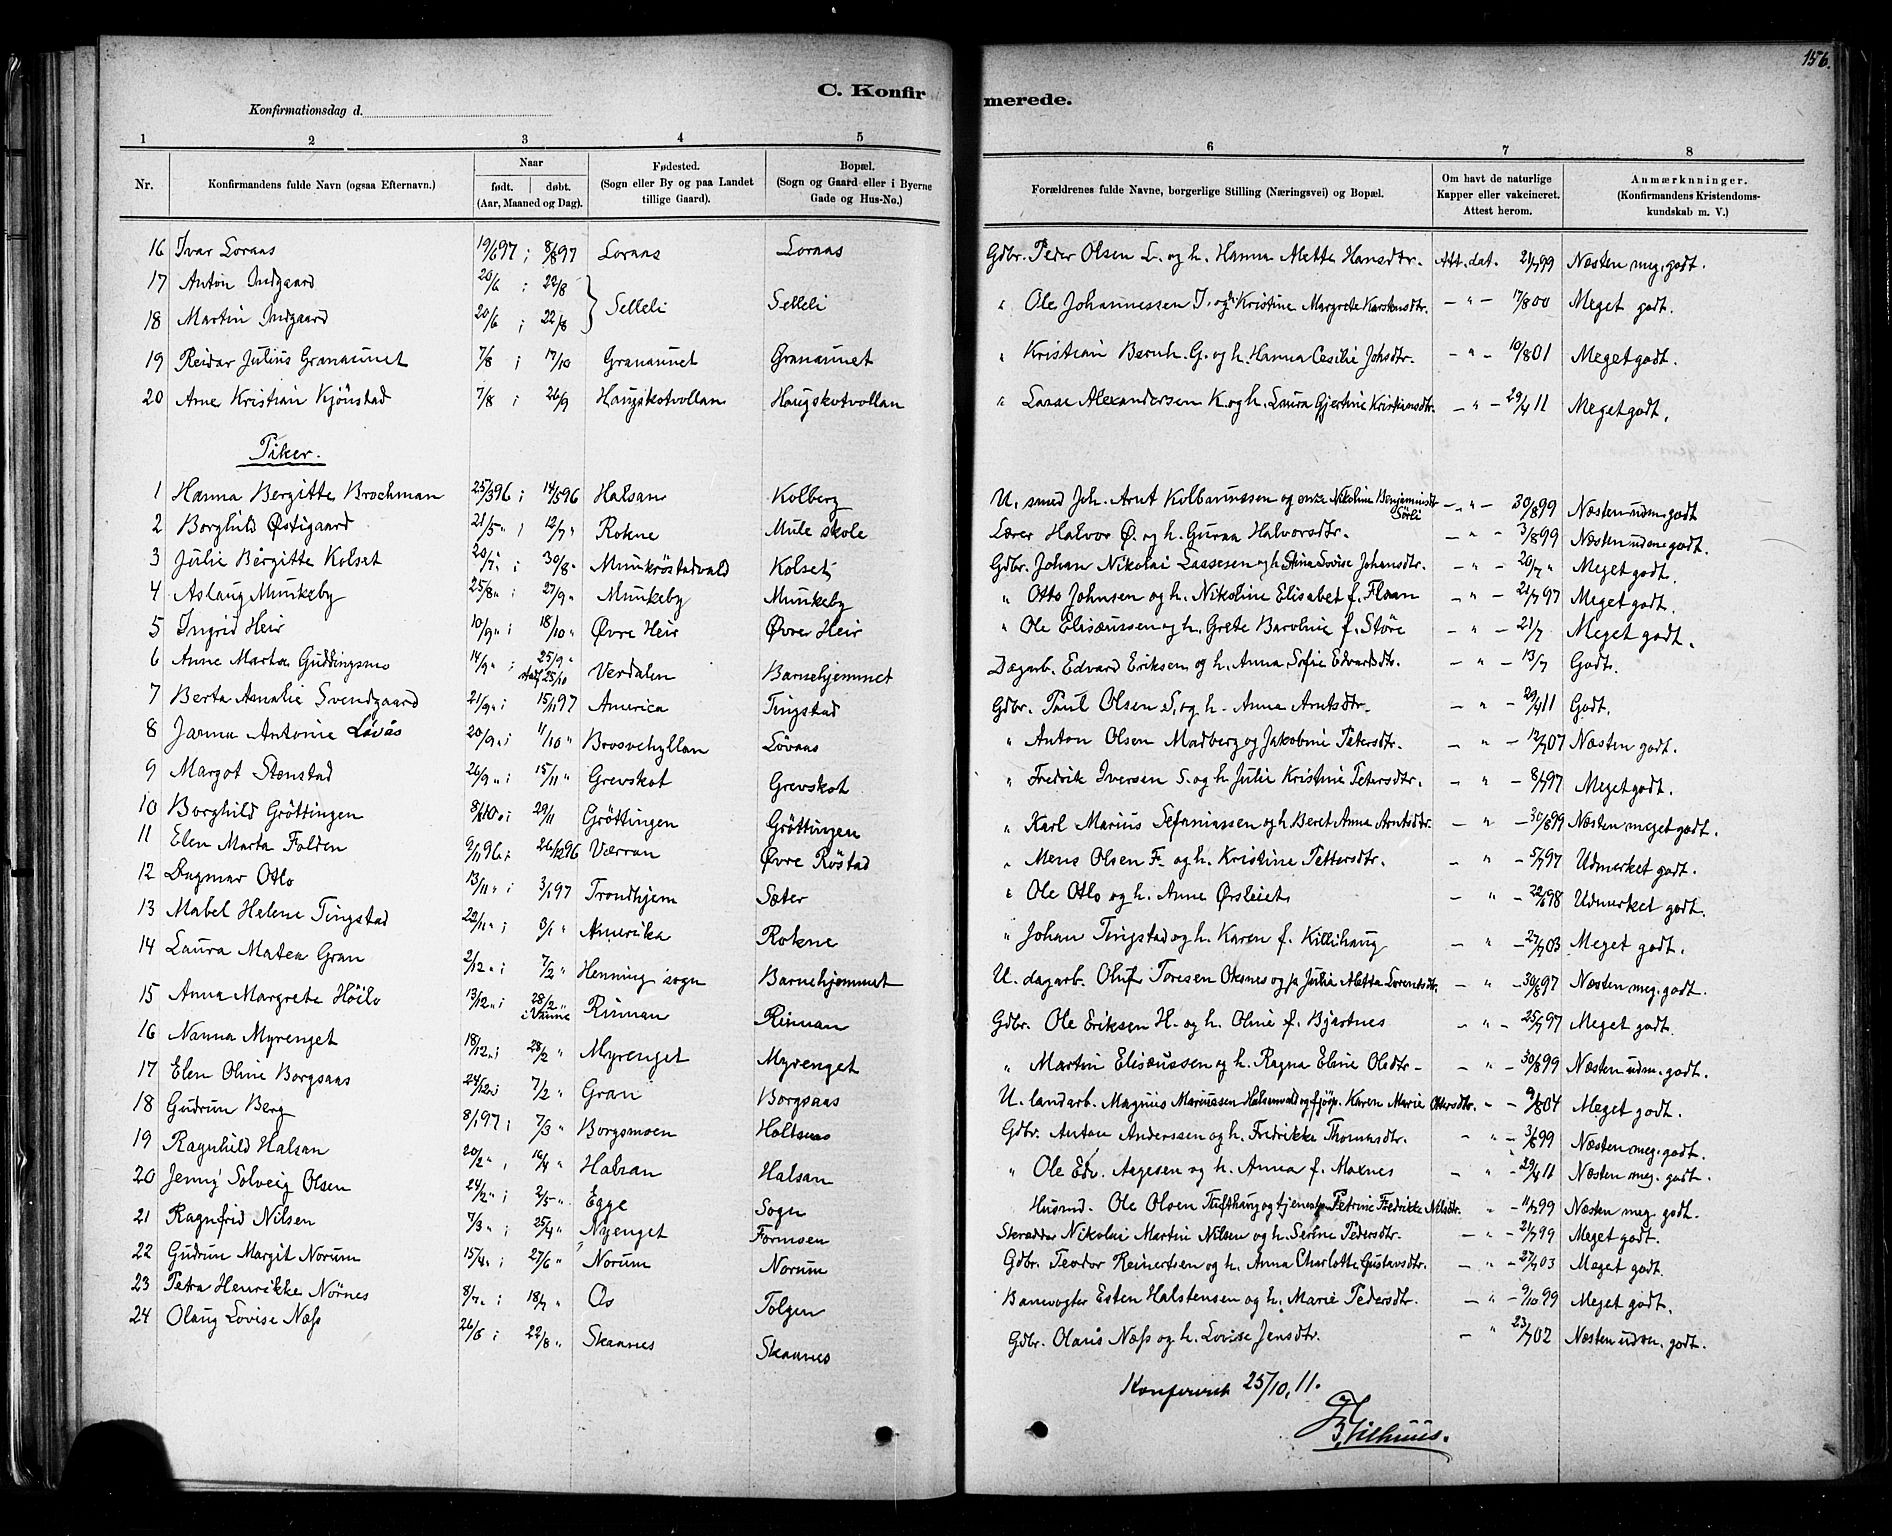 156.
C. Konfirmerede.
Konfirmationsdag d.
1 2 3 4 5 6 7 8
Nr. Konfirmandens fulde Navn (ogsaa Efternavn.) Naar født. døbt. (Aar, Maaned og Dag). Fødested. (Sogn eller By og paa Landet tillige Gaard). Bopæl. (Sogn og Gaard eller i Byerne Gade og Hus-No.) Forældrenes fulde Navne, borgerlige Stilling (Næringsvei) og Bopæl. Om havt de naturlige Kapper eller vakcineret. Attest herom. Anmærknninger. (Konfirmandens Kristendomskundskab m. V.)
16 Ivar Loraas 19/6 97 ; 8/8 97 Loraas Loraas Gdbr. Peder Olsen L. og h. Hanna Mette Hansdtr. Att. dat. 21/7 99 Næsten meg. godt.
17 Anton Indgaard 20/6 ; 22/8 } Selleli Selleli " Ole Johannessen I. og h. Kristine Margrete Karstensdtr. — " — 17/8 00 Meget godt.
18 Martin Indgaard 20/6 ; 22/8
19 Reidar Julius Granaunet 7/8 ; 17/10 Granaunet Granaunet " Kristian Bernh. G. og h. Hanna Cesilie Johsdtr. — " — 10/8 01 Meget godt.
20 Arne Kristian Kjönstad 7/8 ; 26/9 Haugskotvollan Haugskotvollan " Lasse Alexandersen K. og h. Laura Gjertine Kristiansdtr. — " — 29/4 11 Meget godt.
Piker.
1 Hanna Bergitte Brochman 25/3 96 ; 14/5 96 Halsan Kolberg U. smed Joh. Arnt Kolbanussen og enke Nikoline Benjaminsdtr Sörli — " — 30/8 99 Næsten udm. godt
2 Borghild Østigaard 21/5 " ; 12/7 " Rokne Mule skole Lærer Halvor Ø. og h. Guraa Halvorsdtr. — " — 3/8 99 Næsten udm. godt.
3 Julie Birgitte Kolset 20/7 " ; 30/8 " Munkröstadvald Kolset Gdbr. Johan Nikolai Lassesen og h. Stina Lovise Johansdtr. — " — 26/7 " Meget godt.
4 Aslaug Munkeby 25/8 " ; 27/9 " Munkeby Munkeby " Otto Johnsen og h. Nikoline Elisabet f. Floan — " — 21/7 97 Meget godt.
5 Ingrid Heir 10/9 " ; 18/10 " Øvre Heir Øvre Heir " Ole Elisæussen og h. Grete Baroline f. Störe — " — 21/7 Meget godt.
6 Anne Marta Guddingsmo 14/9 " ; 25/9 " stadf. 25/10 Verdalen Barnehjemmet Dagarb. Edvard Eriksen og h. Anna Sofie Edvardsdtr. — " — 13/7 Godt.
7 Berta Amalie Svendgaard 21/9 " ; 15/1 97 America Tingstad Gdbr. Paul Olsen S. og h. Anna Arntsdtr. — " — 29/4 11 Godt.
8 Jarma Antonie Lövås 20/9 " ; 11/10 " Brosvehyllan Lövaas " Anton Olsen Madberg og Jakobine Petersdtr. — " — 12/7 07 Næsten godt.
9 Margot Stenstad 26/9 " ; 15/11 " Grevskot Grevskot " Fredrik Iversen S. og h. Julie Kristine Petersdtr. — " — 8/7 97 Meget godt.
10 Borghild Gröttingen 8/10 " ; 29/11 Gröttingen Gröttingen " Karl Marius Sefaniassen og h. Beret Anna Arntsdtr. — " — 30/8 99 Næsten meget godt.
11 Elen Marta Folden 9/11 96 ; 26/12 96 Værran Øvre Röstad " Mens Olsen F. og h. Kristine Pettersdtr. — " — 5/7 97 Udmerket godt.
12 Dagmar Otlo 13/11 " ; 3/1 97 Trondhjem Sæter " Ole Otlo og h. Anne Ørsleiet — " — 22/6 98 Udmerket godt.
13 Mabel Helene Tingstad 22/11 " ; 3/1 " Amerika Rokne " Johan Tingstad og h. Karen f. Killihaug — " — 27/7 03 Meget godt.
14 Laura Matea Gran 2/12 " ; 7/2 " Henning sogn Barnehjemmet U. dagarb. Oluf Toresen Oksnes og p. Julia Aletta Lorentsdtr. — " — 30/8 97 Næsten meg. godt.
15 Anna Margrete Höilo 13/12 " ; 28/2 " Rinnan Rinnan Gdbr. Ole Eriksen H. og h. Oline f. Bjartnes — " — 25/7 97 Meget godt.
16 Nanna Myrenget 18/12 " ; 28/2 " Myrenget Myrenget " Martin Elisæussen og h. Ragna Eline Olsdtr — " — 30/8 99 Næsten udm. godt.
17 Elen Oline Borgsaas 24/12 " ; 7/2 " Gran Borgsaas U. landarb. Magnus Mariussen Halsenvald og fjöp. Karen Marie Ottersdtr. " — 9/8 04 Meget godt.
18 Gudrun Berg 8/1 97 ; 7/3 " Borgsmoen Holtsaas Gdbr. Anton Anderssen og h. Fredrikke Thomasdtr. — " — 3/6 99 Næsten meg. godt.
19 Ragnhild Halsan 20/2 " ; 16/4 " Halsan Halsan " Ole Edv. Aagesen og h. Anna f. Moxnes — " — 29/4 11 Næsten meg. godt.
20 Jenny Solveig Olsen 24/2 " ; 2/5 " Egge Sogn Husmd. Ole Olsen Tufthaug og tjenestp. Petrine Fredrikke Nilsdtr. " — 11/7 99 Næsten meg. godt.
21 Ragnfrid Nilsen 7/3 " ; 25/4 " Nyenget Formoen Skrædder Nikolai Martin Nilsen og h. Serine Pedersdtr. — " — 21/7 99 Meget godt.
22 Gudrun Margit Norum 15/4 " ; 27/6 " Norum Norum Gdbr. Teodor Reinertsen og h. Anna Charlotte Gustavsdtr. — " — 27/7 03 Meget godt.
23 Petra Henrikke Nörnes 8/7 " ; 18/7 " Os Tolgen Banevogter Esten Halstensen og h. Marie Pedersdtr. — " — 9/10 99 Meget godt.
24 Olaug Lovise Næss 26/6 ; 22/8 " Skaanes Skaanes Gdbr. Olaus Næss og h. Lovise Jensdtr. — " 23/7 02 Næsten udm. godt.
Konfereret 25/10. 11.